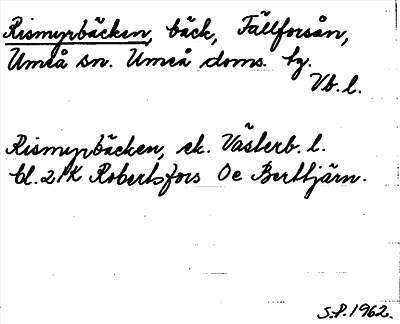 Rismyrbäcken, bäck, Fällforsån,
Umeå sn. Umeå doms. tg.
Vb. l.
Rismyrbäcken, ek. Västerb. l.
bl. 21K Robertsfors Oe Berttjärn.
S.P. 1962.